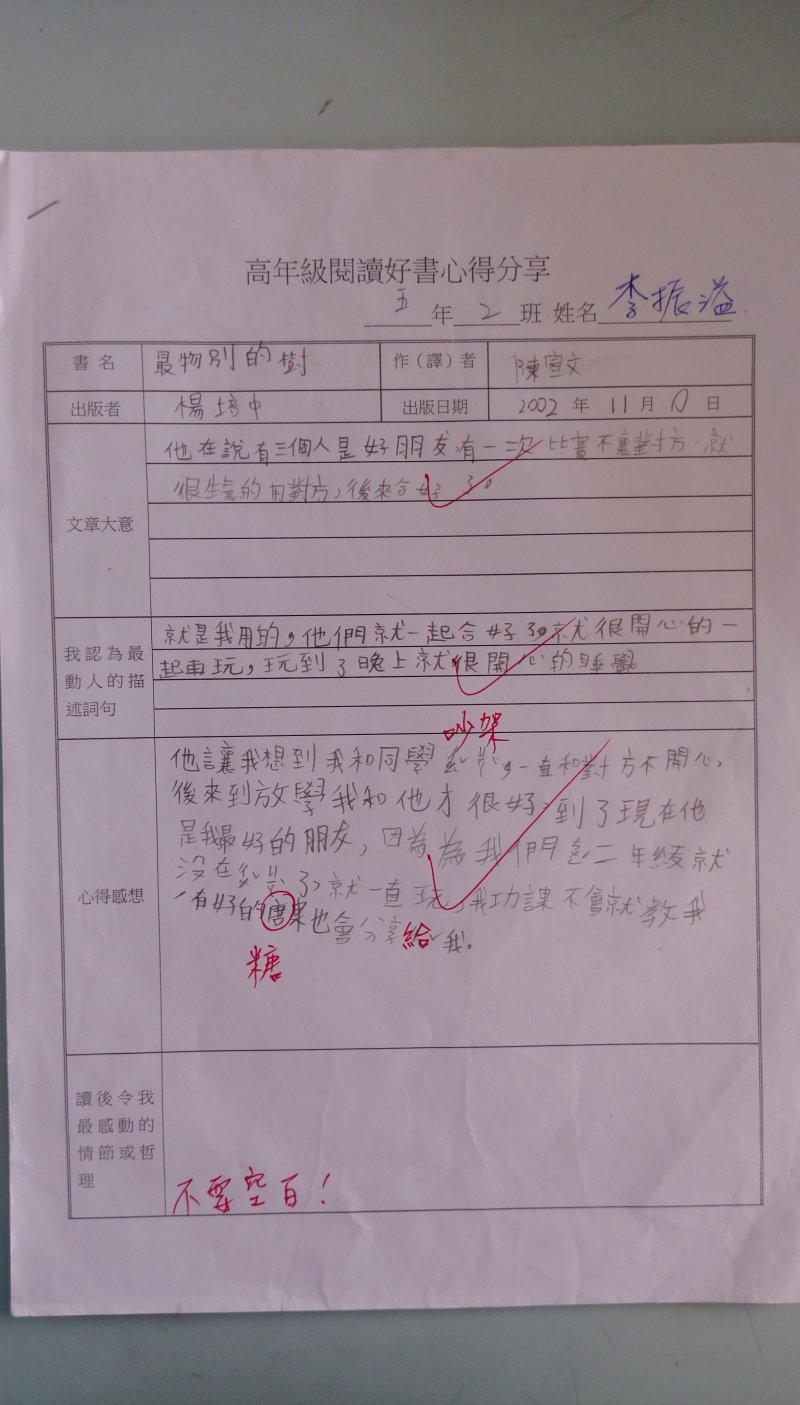 高年級閱讀好書心得分享
五年2班 姓名 李振溢
書名 最物別的樹 作(譯)者 陳宣文
出版者 楊培中 出版日期 2002年11月 日
文章大意
他在說有三個人是好朋友,有一次比賽不裏對方,就
很生氣的 對方,後來合好了。
我認為最動人的描述詞句
就是我用的,他們就一起合好了。就很開心的一
起再玩,玩到了晚上就很開心的睡覺
吵架
心得感想
他讓我想到我和同學 ,一直和對方不開心,
後來到放學我和他才很好,到了現在他
是我最好的朋友,因為為我們 二年級就
沒在 了,就一直玩,我功課不會就教我
有好的唐果也會分享給我。
糖
讀後令我最感動的情節或哲理
不要空白!